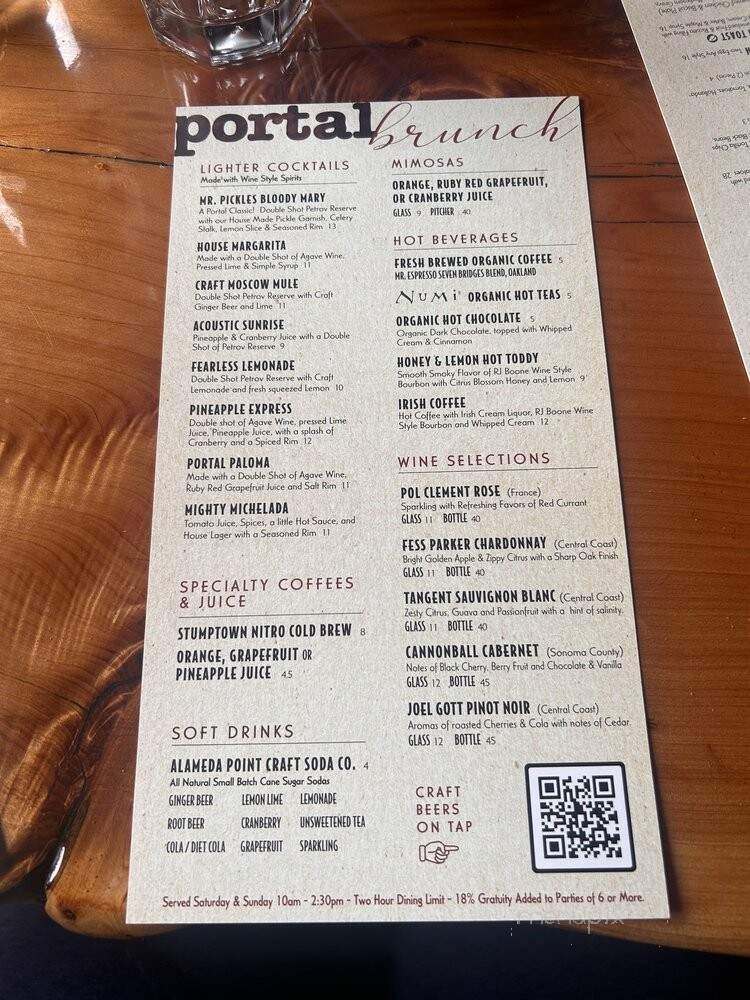 portal brunch
LIGHTER COCKTAILS
Made with Wine Style Spirits
MR. PICKLES BLOODY MARY
A Portal Classic! Double Shot Petrov Reserve
with our House Made Pickle Garnish, Celery
Stalk, Lemon Slice & Seasoned Rim 13
HOUSE MARGARITA
Made with a Double Shot of Agave Wine,
Pressed Lime & Simple Syrup 11
CRAFT MOSCOW MULE
Double Shot Petrov Reserve with Craft
Ginger Beer and Lime 11
ACOUSTIC SUNRISE
Pineapple & Cranberry Juice with a Double
Shot of Petrov Reserve 9
FEARLESS LEMONADE
Double Shot Petrov Reserve with Craft
Lemonade and fresh squeezed Lemon 10
PINEAPPLE EXPRESS
Double shot of Agave Wine, pressed Lime
Juice, Pineapple Juice, with a splash of
Cranberry and a Spiced Rim 12
PORTAL PALOMA
Made with a Double Shot of Agave Wine,
Ruby Red Grapefruit Juice and Salt Rim 11
MIGHTY MICHELADA
Tomato Juice, Spices, a little Hot Sauce, and
House Lager with a Seasoned Rim 11
SPECIALTY COFFEES
& JUICE
STUMPTOWN NITRO COLD BREW 8
ORANGE, GRAPEFRUIT OR
PINEAPPLE JUICE 4.5
SOFT DRINKS
ALAMEDA POINT CRAFT SODA CO. 4
All Natural Small Batch Cane Sugar Sodas
GINGER BEER LEMON LIME LEMONADE
ROOT BEER CRANBERRY UNSWEETENED TEA
COLA / DIET COLA GRAPEFRUIT SPARKLING
MIMOSAS
ORANGE, RUBY RED GRAPEFRUIT,
OR CRANBERRY JUICE
GLASS 9 PITCHER 40
HOT BEVERAGES
FRESH BREWED ORGANIC COFFEE 5
MR. ESPRESSO SEVEN BRIDGES BLEND, OAKLAND
NUMI ORGANIC HOT TEAS 5
ORGANIC HOT CHOCOLATE 5
Organic Dark Chocolate, topped with Whipped
Cream & Cinnamon
HONEY & LEMON HOT TODDY
Smooth Smoky Flavor of RJ Boone Wine Style
Bourbon with Citrus Blossom Honey and Lemon 9
IRISH COFFEE
Hot Coffee with Irish Cream Liquor, RJ Boone Wine
Style Bourbon and Whipped Cream 12
WINE SELECTIONS
POL CLEMENT ROSE (France)
Sparkling with Refreshing Favors of Red Currant
GLASS 11 BOTTLE 40
FESS PARKER CHARDONNAY (Central Coast)
Bright Golden Apple & Zippy Citrus with a Sharp Oak Finish
GLASS 11 BOTTLE 40
TANGENT SAUVIGNON BLANC (Central Coast)
Zesty Citrus, Guava and Passionfruit with a hint of salinity.
GLASS 11 BOTTLE 40
CANNONBALL CABERNET (Sonoma County)
Notes of Black Cherry, Berry Fruit and Chocolate & Vanilla
GLASS 12 BOTTLE 45
JOEL GOTT PINOT NOIR (Central Coast)
Aromas of roasted Cherries & Cola with notes of Cedar.
GLASS 12 BOTTLE 45
CRAFT
BEERS
ON TAP
Served Saturday & Sunday 10am - 2:30pm - Two Hour Dining Limit - 18% Gratuity Added to Parties of 6 or More.